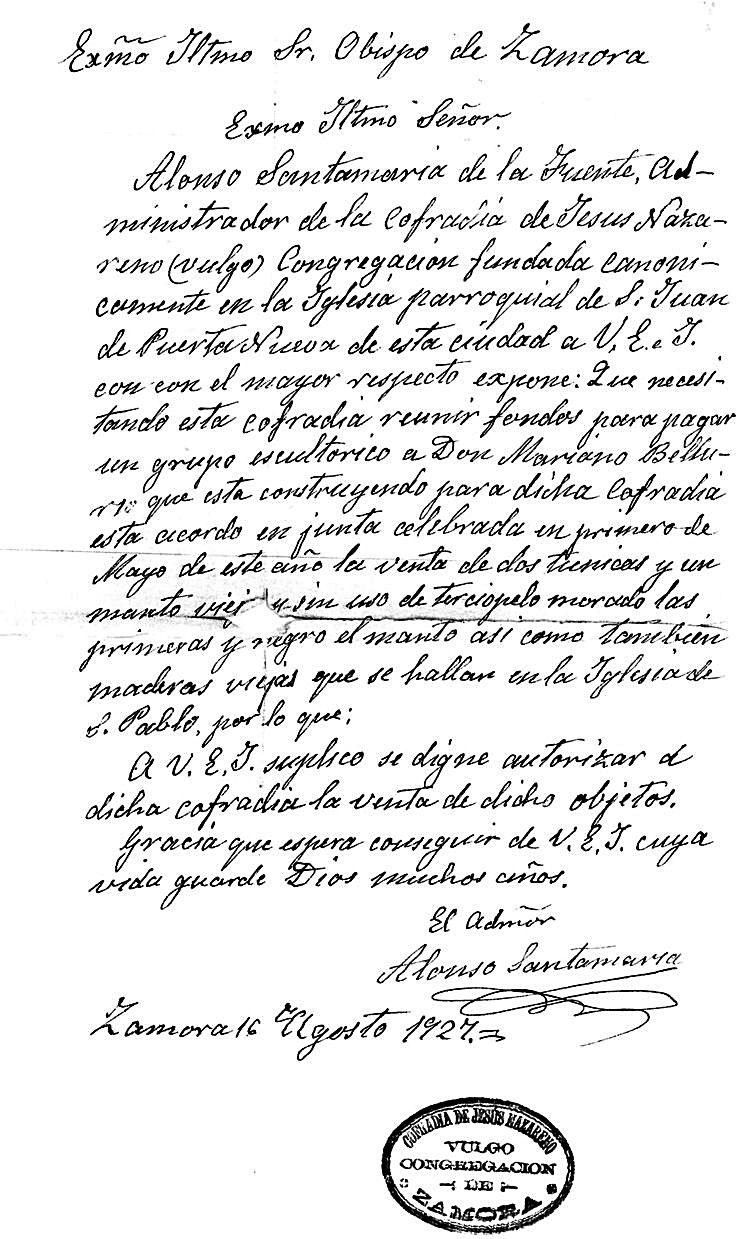 Exmõ Iltmo Sr. Obispo de Zamora
Exmo Iltmo Señor.
Alonso Santamaria de la Fuente, Ad-
ministrador de la Cofradia de Jesus Naza-
reno (vulgo) Congregación fundada canoni-
camente en la Iglesia parroquial de S. Juan
de Puerta Nueva de esta ciudad a V. E. e I.
con con el mayor respecto expone: Que necesi-
tando esta cofradia reunir fondos para pagar
un grupo escultorico a Don Mariano Bellu-
rio que esta construyendo para dicha Cofradia
esta acordo en junta celebrada en primero de
Mayo de este año la venta de dos tunicas y un
manto viejo y sin uso de terciopelo morado las
primeras y negro el manto asi como también
maderas viejas que se hallan en la Iglesia de
S. Pablo, por lo que;
A V. E. I. suplico se digne autorizar a
dicha cofradia la venta de dicho objetos.
Gracia que espera conseguir de V. E. I. cuya
vida guarde Dios muchos años.
El Admõr
Alonso Santamaria
Zamora 16 Agosto 1927.=
COFRADIA DE JESÚS NAZARENO
VULGO
CONGREGACION
DE
ZAMORA